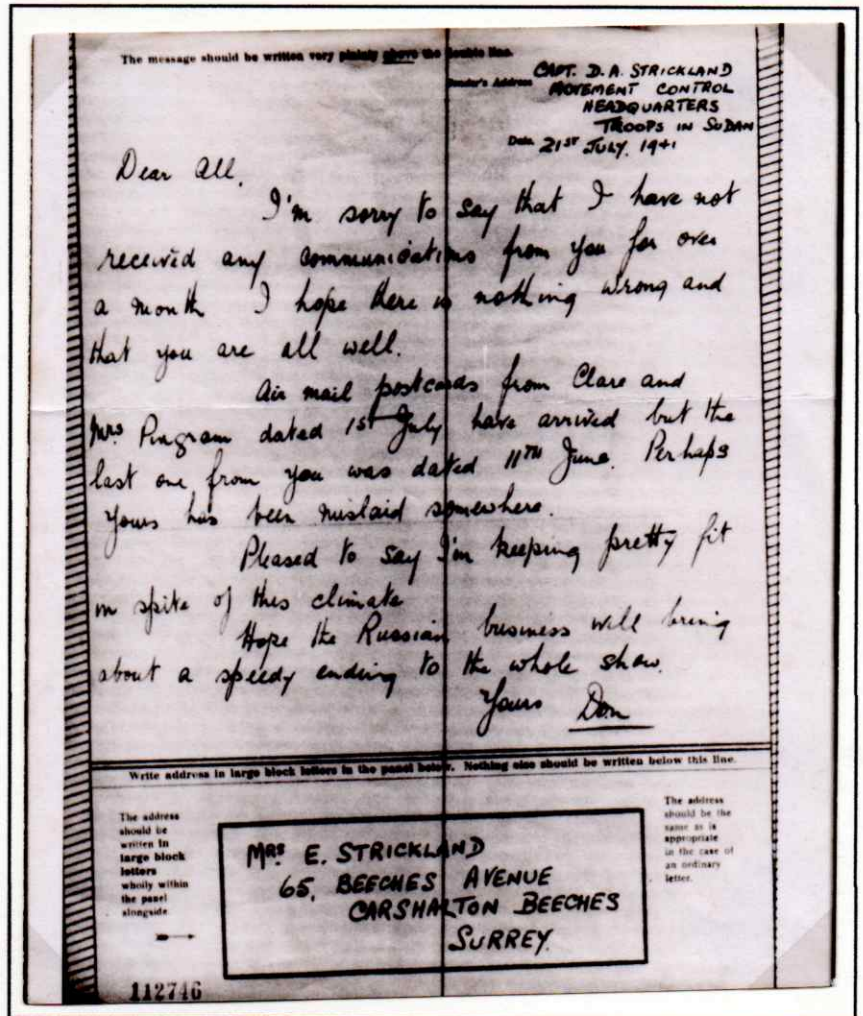 The message should be written very plainly above the double line.
Sender's Address CAPT. D. A. STRICKLAND
MOVEMENT CONTROL
HEADQUARTERS
TROOPS IN SUDAN
Date 21ST JULY. 1941
Dear All,
I'm sorry to say that I have not
received any communications from you for over
a month I hope there is nothing wrong and
that you are all well.
Air mail postcards from Clare and
Mrs Pingram dated 1st July have arrived but the
last one from you was dated 11TH June. Perhaps
yours has been mislaid somewhere.
Pleased to say I'm keeping pretty fit
in spite of this climate
Hope the Russian business will bring
about a speedy ending to the whole show.
Yours Don
Write address in large block letters in the panel below. Nothing else should be written below this line.
The address
should be
written in
large block
letters
wholly within
the panel
alongside.
MRS. E. STRICKLAND
65, BEECHES AVENUE
CARSHALTON BEECHES
SURREY.
The address
should be the
same as is
appropriate
in the case of
an ordinary
letter.
112746